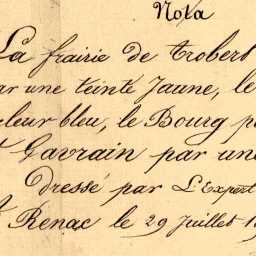 Nota
La frairie de trobert
par une teinte Jaune, le
couleur bleu, le Bourg p
St Gavrain par une
Dressé par L'Expert
A Renac le 29 Juillet 1